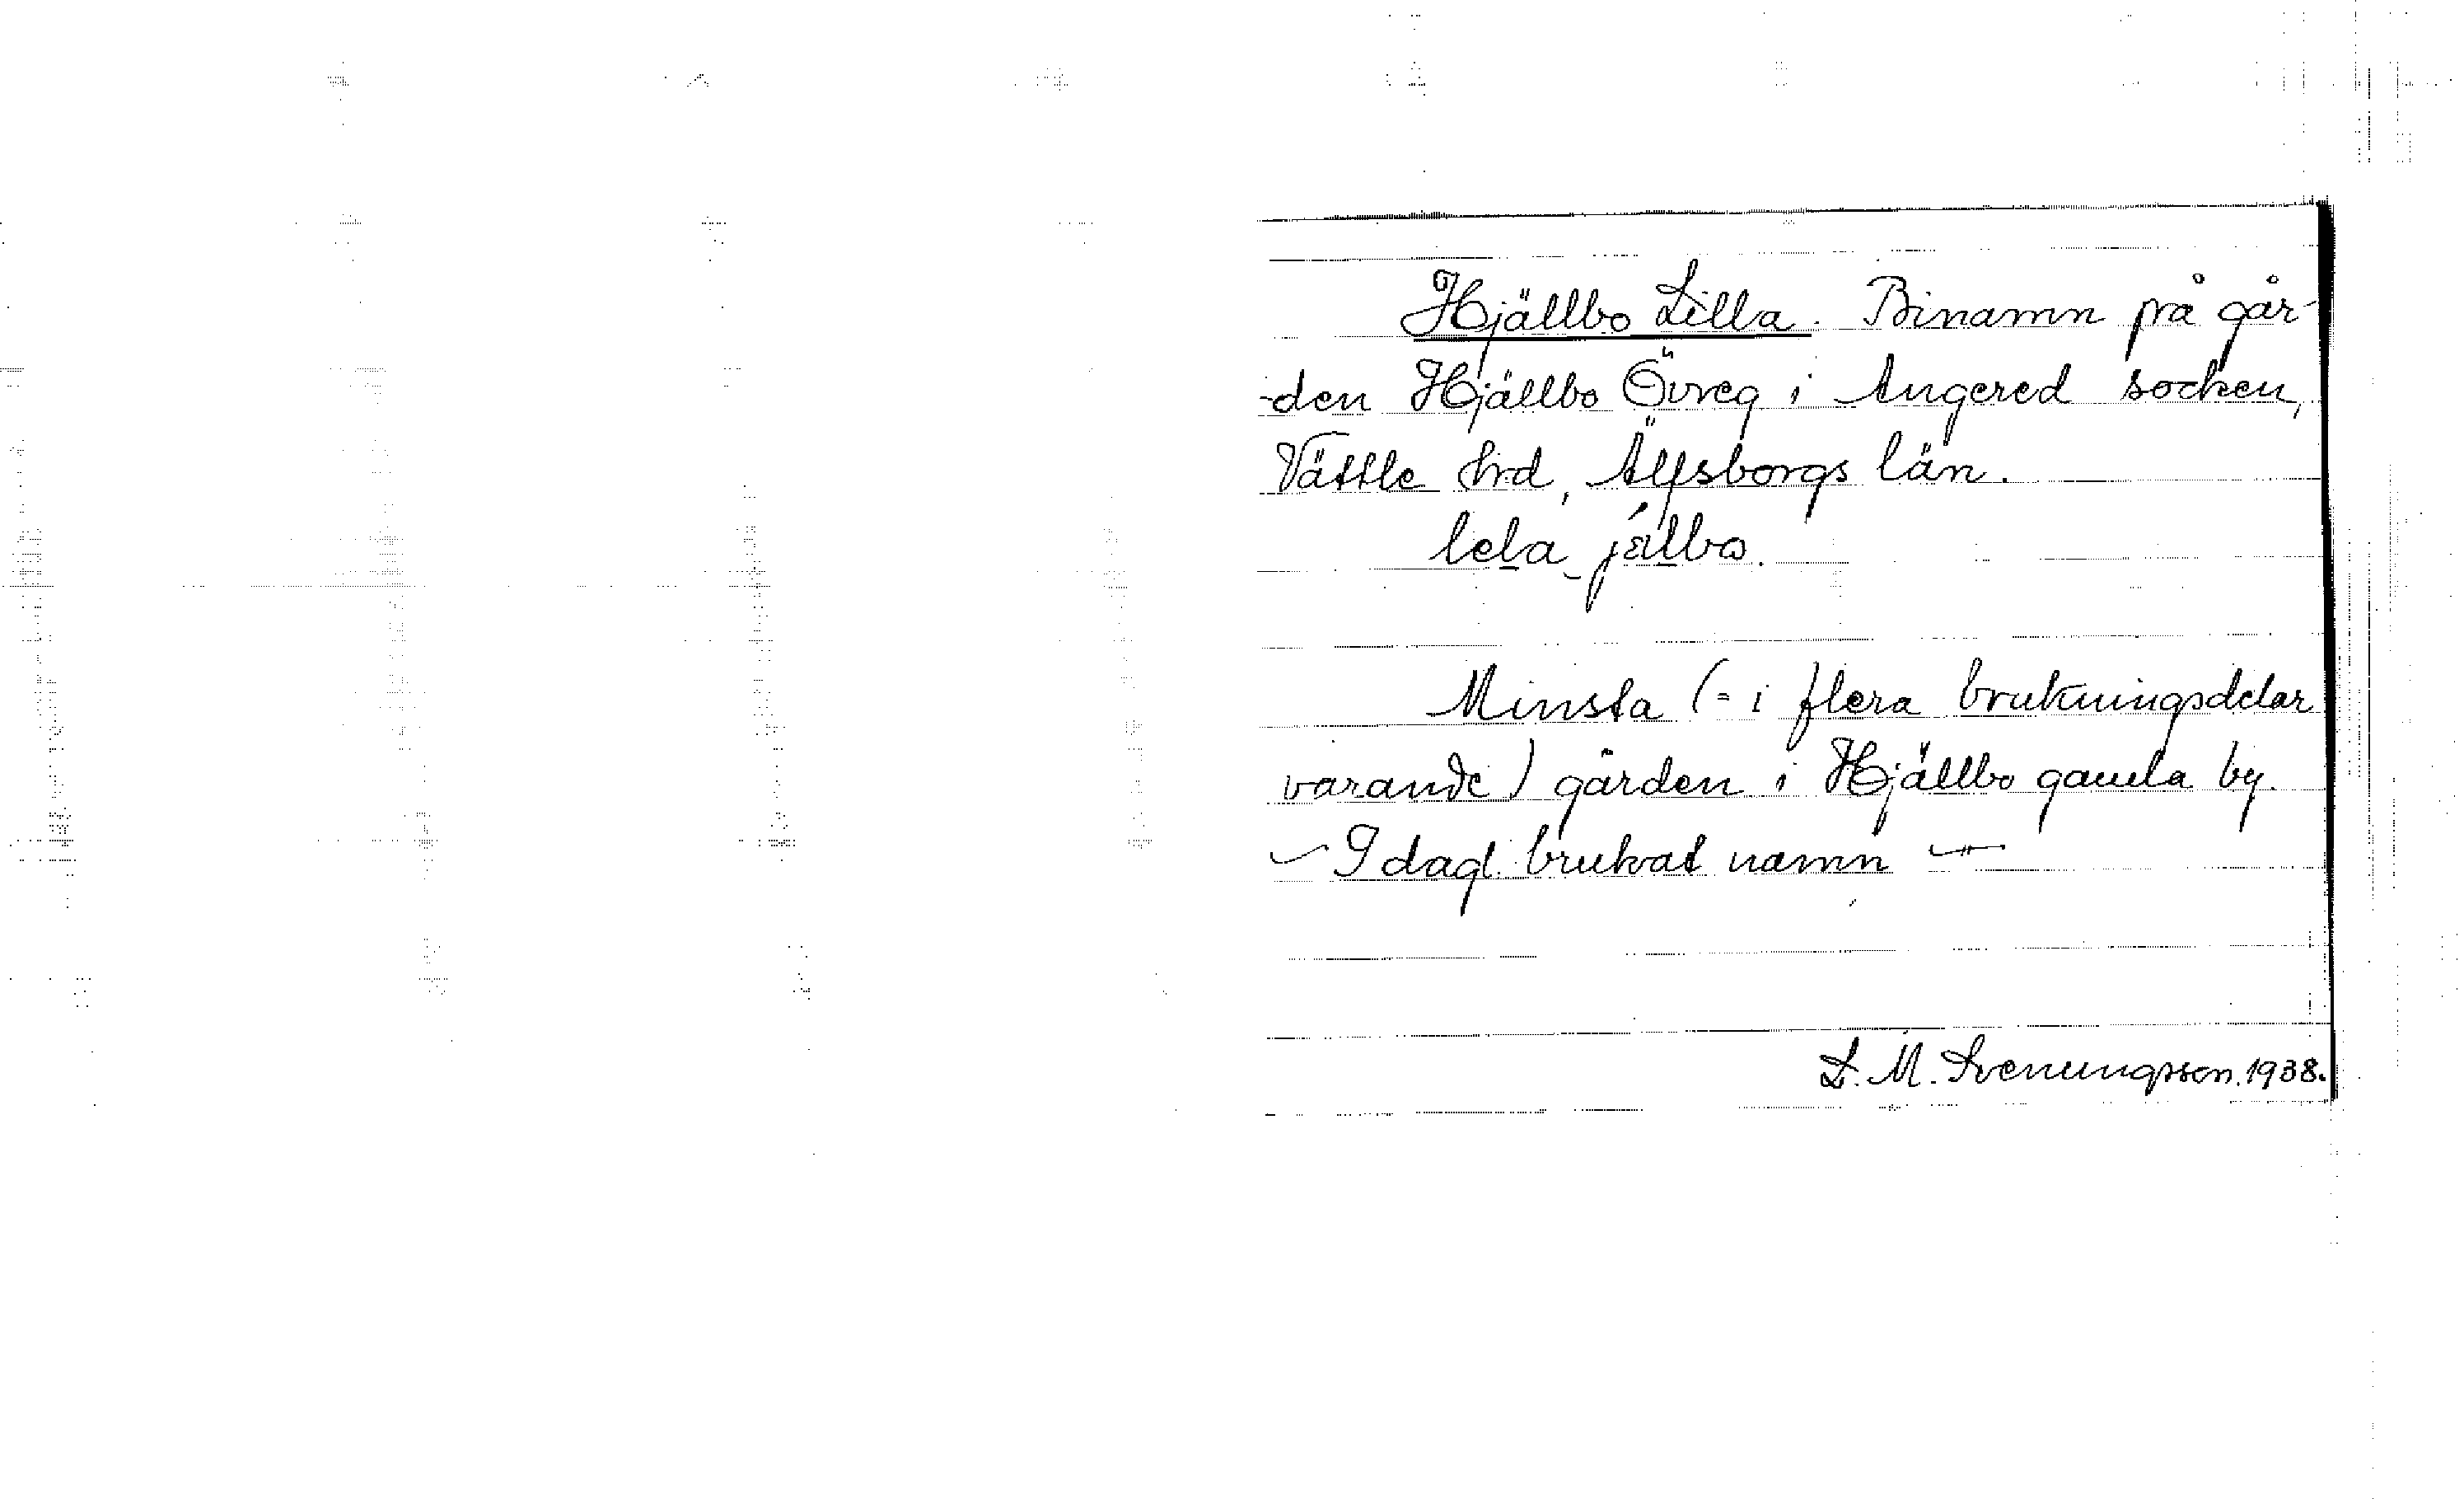 Hjällbo Lilla. Binamn på går-
-den Hjällbo Övreg i Angered socken,
Vättle hrd, Älfsborgs län.
lela jälbo.
Minsta (= i flera brukningsdelar
varande) gården i Hjällbo gamla by.
– I dagl. brukat namn –
L. M. Svenungsson. 1938.